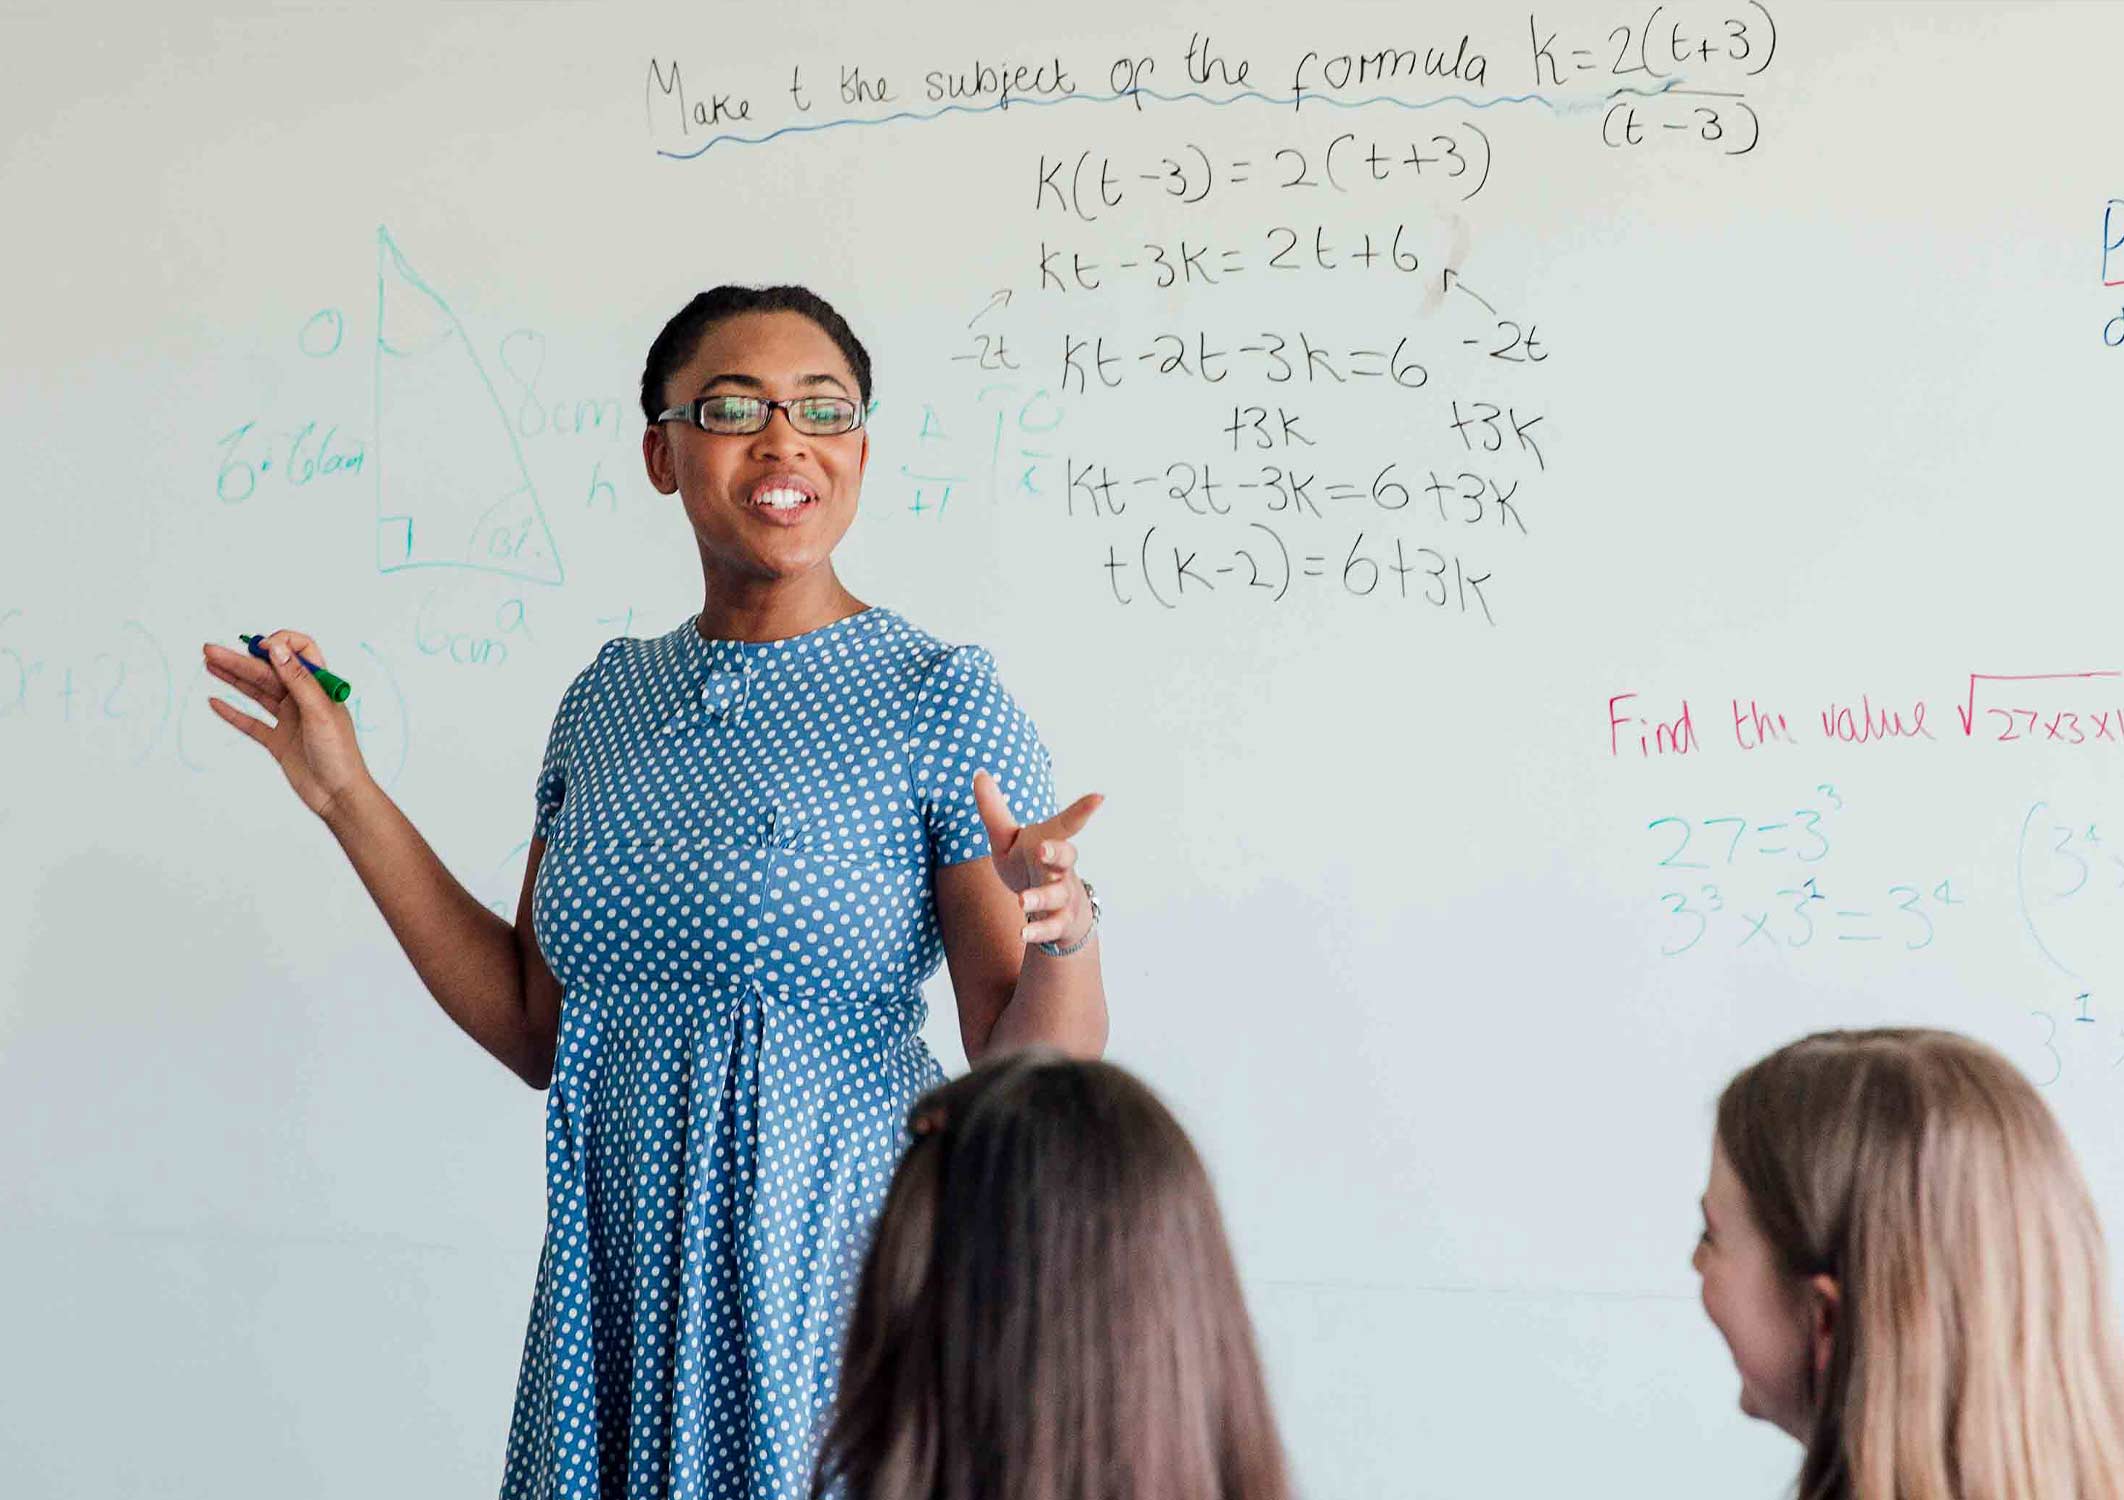 Make t the subject of the formula k=2(t+3)
(t-3)
k(t-3)=2(t+3)
kt-3k=2t+6
-2t kt-2t-3k=6 -2t
+3k +3k
kt-2t-3k=6+3k
t(k-2)=6+3k
0
8cm
h
6cm
a
Find the value √27x3x
27=3³
3³x3¹=3⁴
(3⁴
3¹